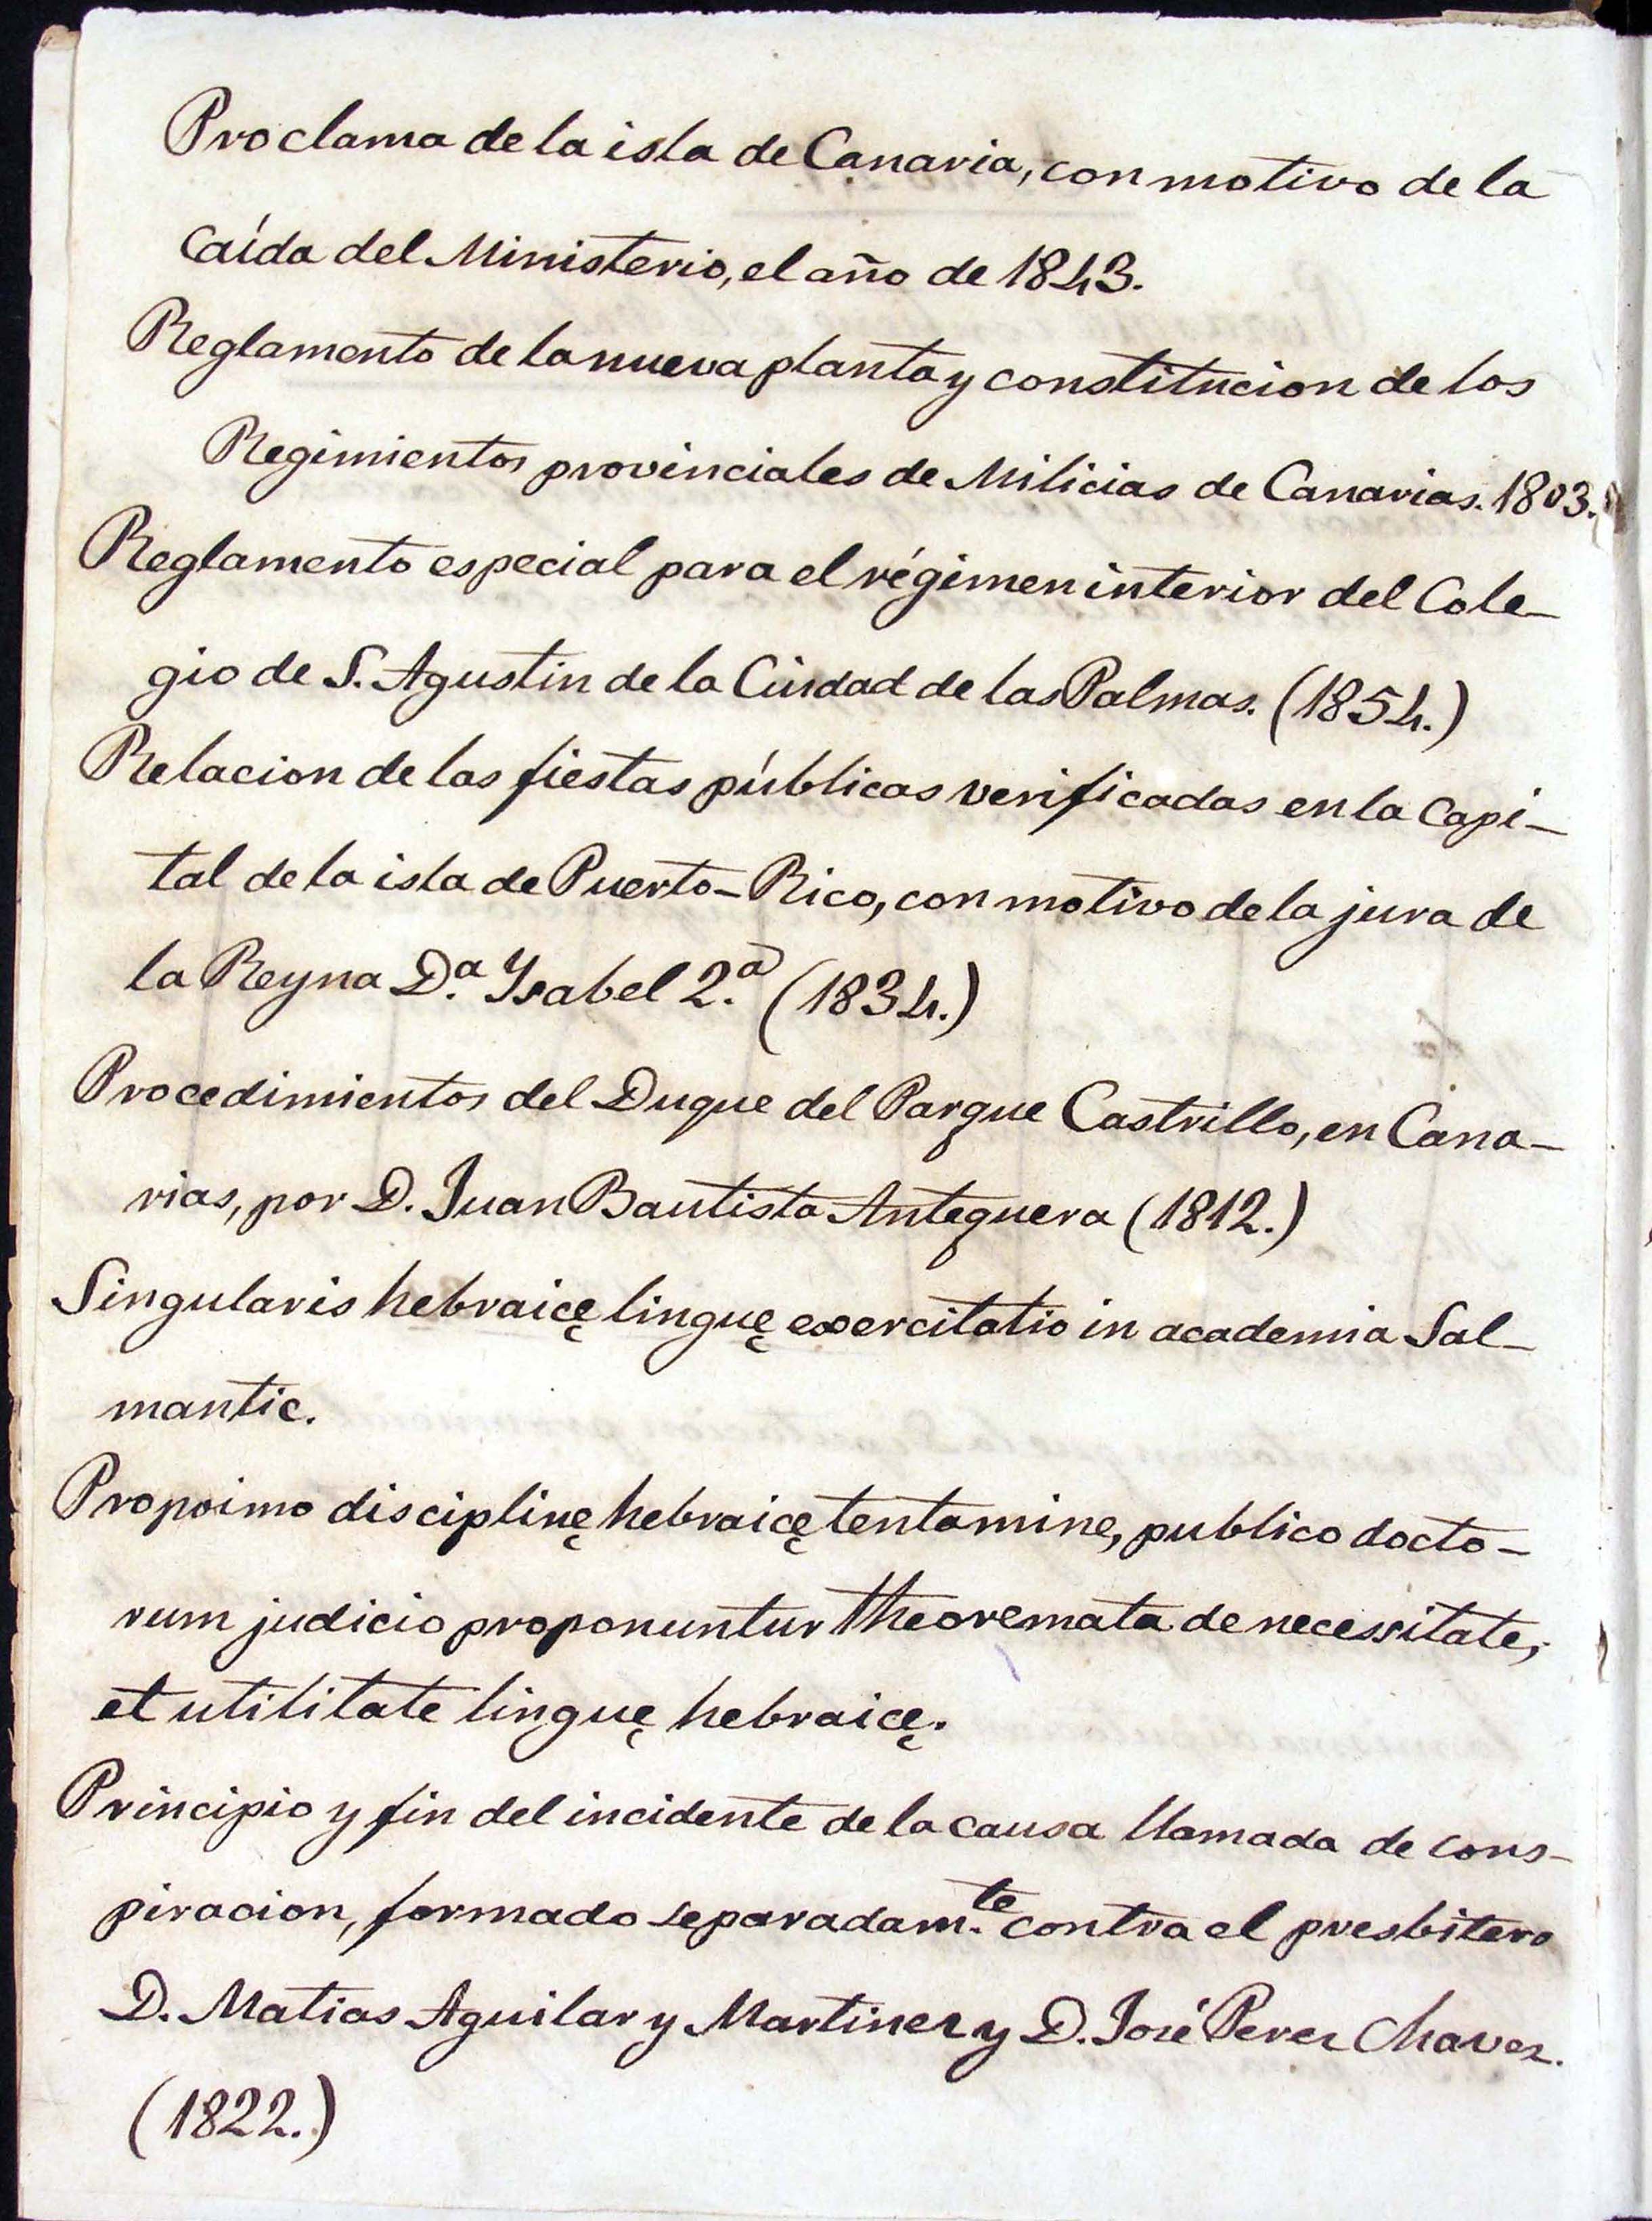 Proclama de la isla de Canaria, con motivo de la
caída del Ministerio, el año de 1843.
Reglamento de la nueva planta y constitucion de los
Regimientos provinciales de Milicias de Canarias. 1803.
Reglamento especial para el régimen interior del Cole-
gio de S. Agustin de la Ciudad de las Palmas. (1854.)
Relacion de las fiestas públicas verificadas en la capi-
tal de la isla de Puerto-Rico, con motivo de la jura de
la Reyna D.ª Ysabel 2.ª (1834.)
Procedimientos del Duque del Parque Castrillo, en Cana-
rias, por D. Juan Bautista Antequera (1812.)
Singularis hebraicę linguę exercitatio in academia Sal-
mantic.
Propoimo disciplinę hebraicę tentamine, publico docto-
rum judicio proponuntur theoremata de necessitate,
et utilitate linguę hebraicę.
Principio y fin del incidente de la causa llamada de cons-
piracion, formado separadam.te contra el presbitero
D. Matias Aguilar y Martinez y D. José Perez Chaves.
(1822.)